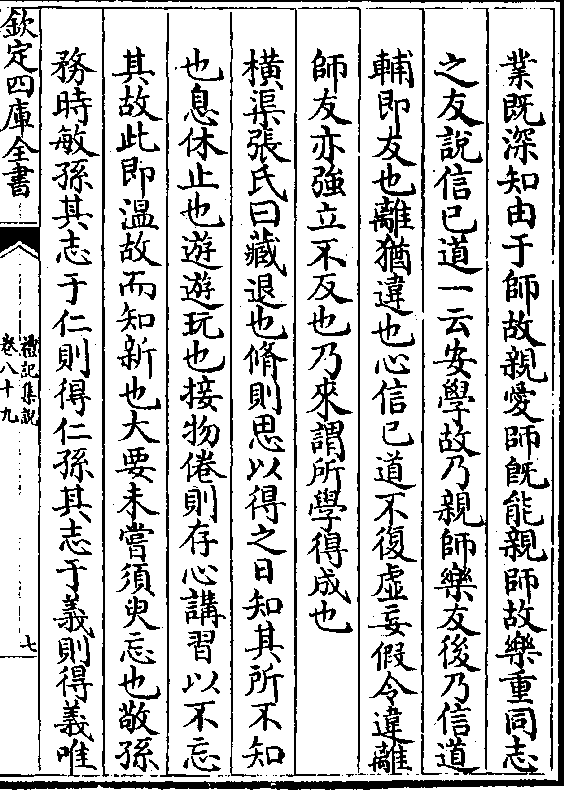 業既深知由于師故親愛師既能親師故樂重同志
之友說信已道一云安學故乃親師樂友後乃信道
輔即友也離猶違也心信已道不復虛妄假令違離
師友亦強立不反也乃來謂所學得成也
橫渠張氏曰藏退也脩則思以得之日知其所不知
也息休止也遊遊玩也接物倦則存心講習以不忘
其故此即温故而知新也大要未嘗須臾忘也敬孫
務時敏孫其志于仁則得仁孫其志于義則得義唯
欽定四庫全書
禮記集說
卷八十九
七